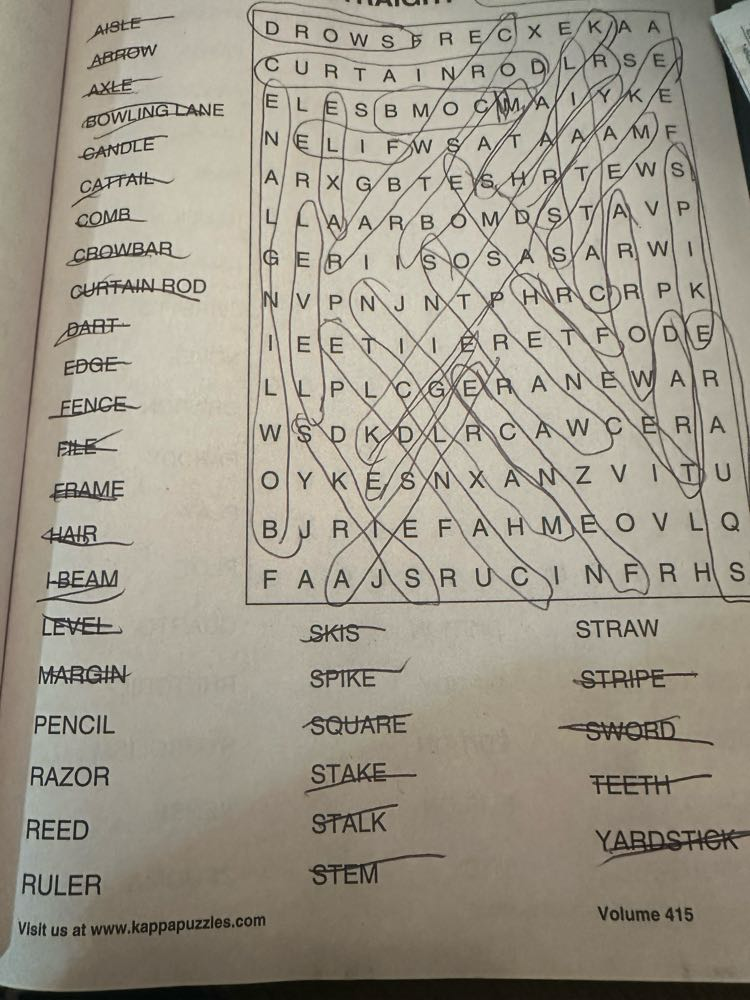 AISLE
ARROW
AXLE
BOWLING LANE
CANDLE
CATTAIL
COMB
CROWBAR
CURTAIN ROD
DART
EDGE
FENCE
FILE
FRAME
HAIR
I-BEAM
LEVEL
MARGIN
PENCIL
RAZOR
REED
RULER
D R O W S F R E C X E K A A
C U R T A I N R O D L R S E
E L E S B M O C M A I Y K E
N E L I F W S A T A A A M F
A R X G B T E S H R T E W S
L L A A R B O M D S T A V P
G E R I I S O S A S A R W I
N V P N J N T P H R C R P K
I E E T I I E R E T F O D E
L L P L C G E R A N E W A R
W S D K D L R C A W C E R A
O Y K E S N X A N Z V I T U
B J R I E F A H M E O V L Q
F A A J S R U C I N F R H S
SKIS
SPIKE
SQUARE
STAKE
STALK
STEM
STRAW
STRIPE
SWORD
TEETH
YARDSTICK
Visit us at www.kappapuzzles.com
Volume 415